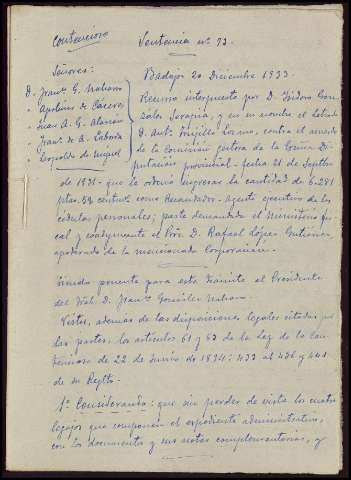 Contencioso
Sentencia nº 73.
Señores:
D. Franco G. Nahano
" Agustín de Cáceres
" Juan A. G. Alarcón
" Franco de A. Laborda
" Leopoldo de Miguel
Badajoz 20 Diciembre 1933
Recurso interpuesto por D. Isidoro Gon
zález Sarapia, y en su nombre el Letrado
D. Antº Trujillo Lozano, contra el acuerdo
de la Comisión gestora de la Excma Di-
putación provincial - fecha 21 de Septbre
de 1931 - que le ordenó ingresar la cantidad de 6.281
ptas. 52 centms como Recaudador - Agente ejecutivo de las
cédulas personales; parte demandada el Ministerio fis-
cal y coadyuvante el Pror. D. Rafael López Gutiérrez,
apoderado de la mencionada Corporación.
Siendo ponente para este trámite el Presidente
del Tral. D. Franco González
Vistos, además de las disposiciones legales citadas por
las partes, los artículos 61 y 63 de la Ley de lo Con-
tencioso de 22 de Junio de 1894: 433 al 436 y 441
de su Reglto.
1º Considerando: que sin perder de vista los cuatro
legajos que componen el expediente administrativo,
con los documentos y sus notas complementarias, y